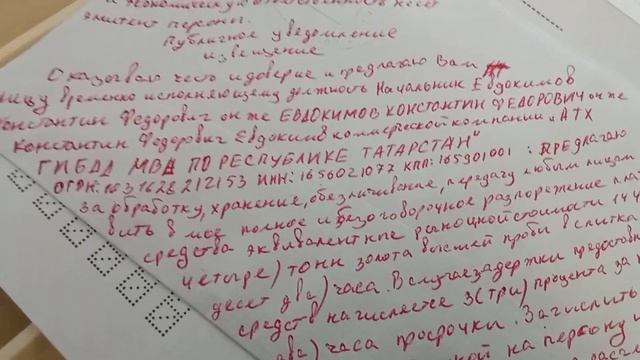 и экономическую ответственность несет
эмитент персоны.
Публичное уведомление
извещение
Оказываю честь и доверие и предлагаю Вам
лицу временно исполняющему должность Начальник Евдокимов
Константин Федорович он же ЕВДОКИМОВ КОНСТАНТИН ФЕДОРОВИЧ он же
Константин Федорович Евдокимов коммерческой компании „АТХ
ГИБДД МВД ПО РЕСПУБЛИКЕ ТАТАРСТАН"
ОГРН: 1631628212153 ИНН: 1656021077 КПП: 165901001: ПРЕДЛАГАЮ
за обработку, хранение, обезличивание, передачу любым лицам
вить в мое полное и безоговорочное разпоряжение
средства эквивалентные рыночной стоимости 144
четыре) тонн золота высшей пробы в слитках
десят два) часа. В случае задержки предоставл
средств начисляется 3(три) процента за к
два) часа просрочки. Зачислить
ной на персону